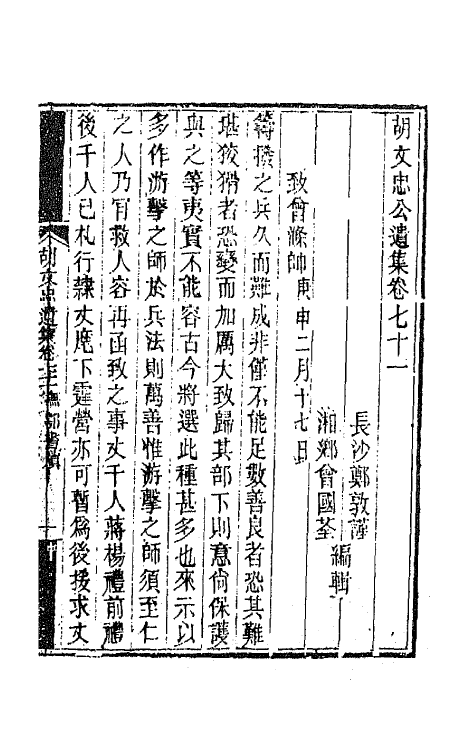 胡文忠公遺集卷七十一
長沙鄭敦謹
湘鄉曾國荃
編輯
致曾滌帥庚申二月十七日
籌撥之兵久而難成非僅不能足數善良者恐其難
堪狡猾者恐變而加厲大致歸其部下則意尚保護
與之等夷實不能容古今將選此種甚多也來示以
多作游擊之師於兵法則萬善惟游擊之師須至仁
之人乃肯救人容再函致之事丈千人蔣楊禮前禮
後千人已札行隸丈麾下霆營亦可暫爲後援求丈
胡文忠公遺集卷七十一 撫鄂書牘